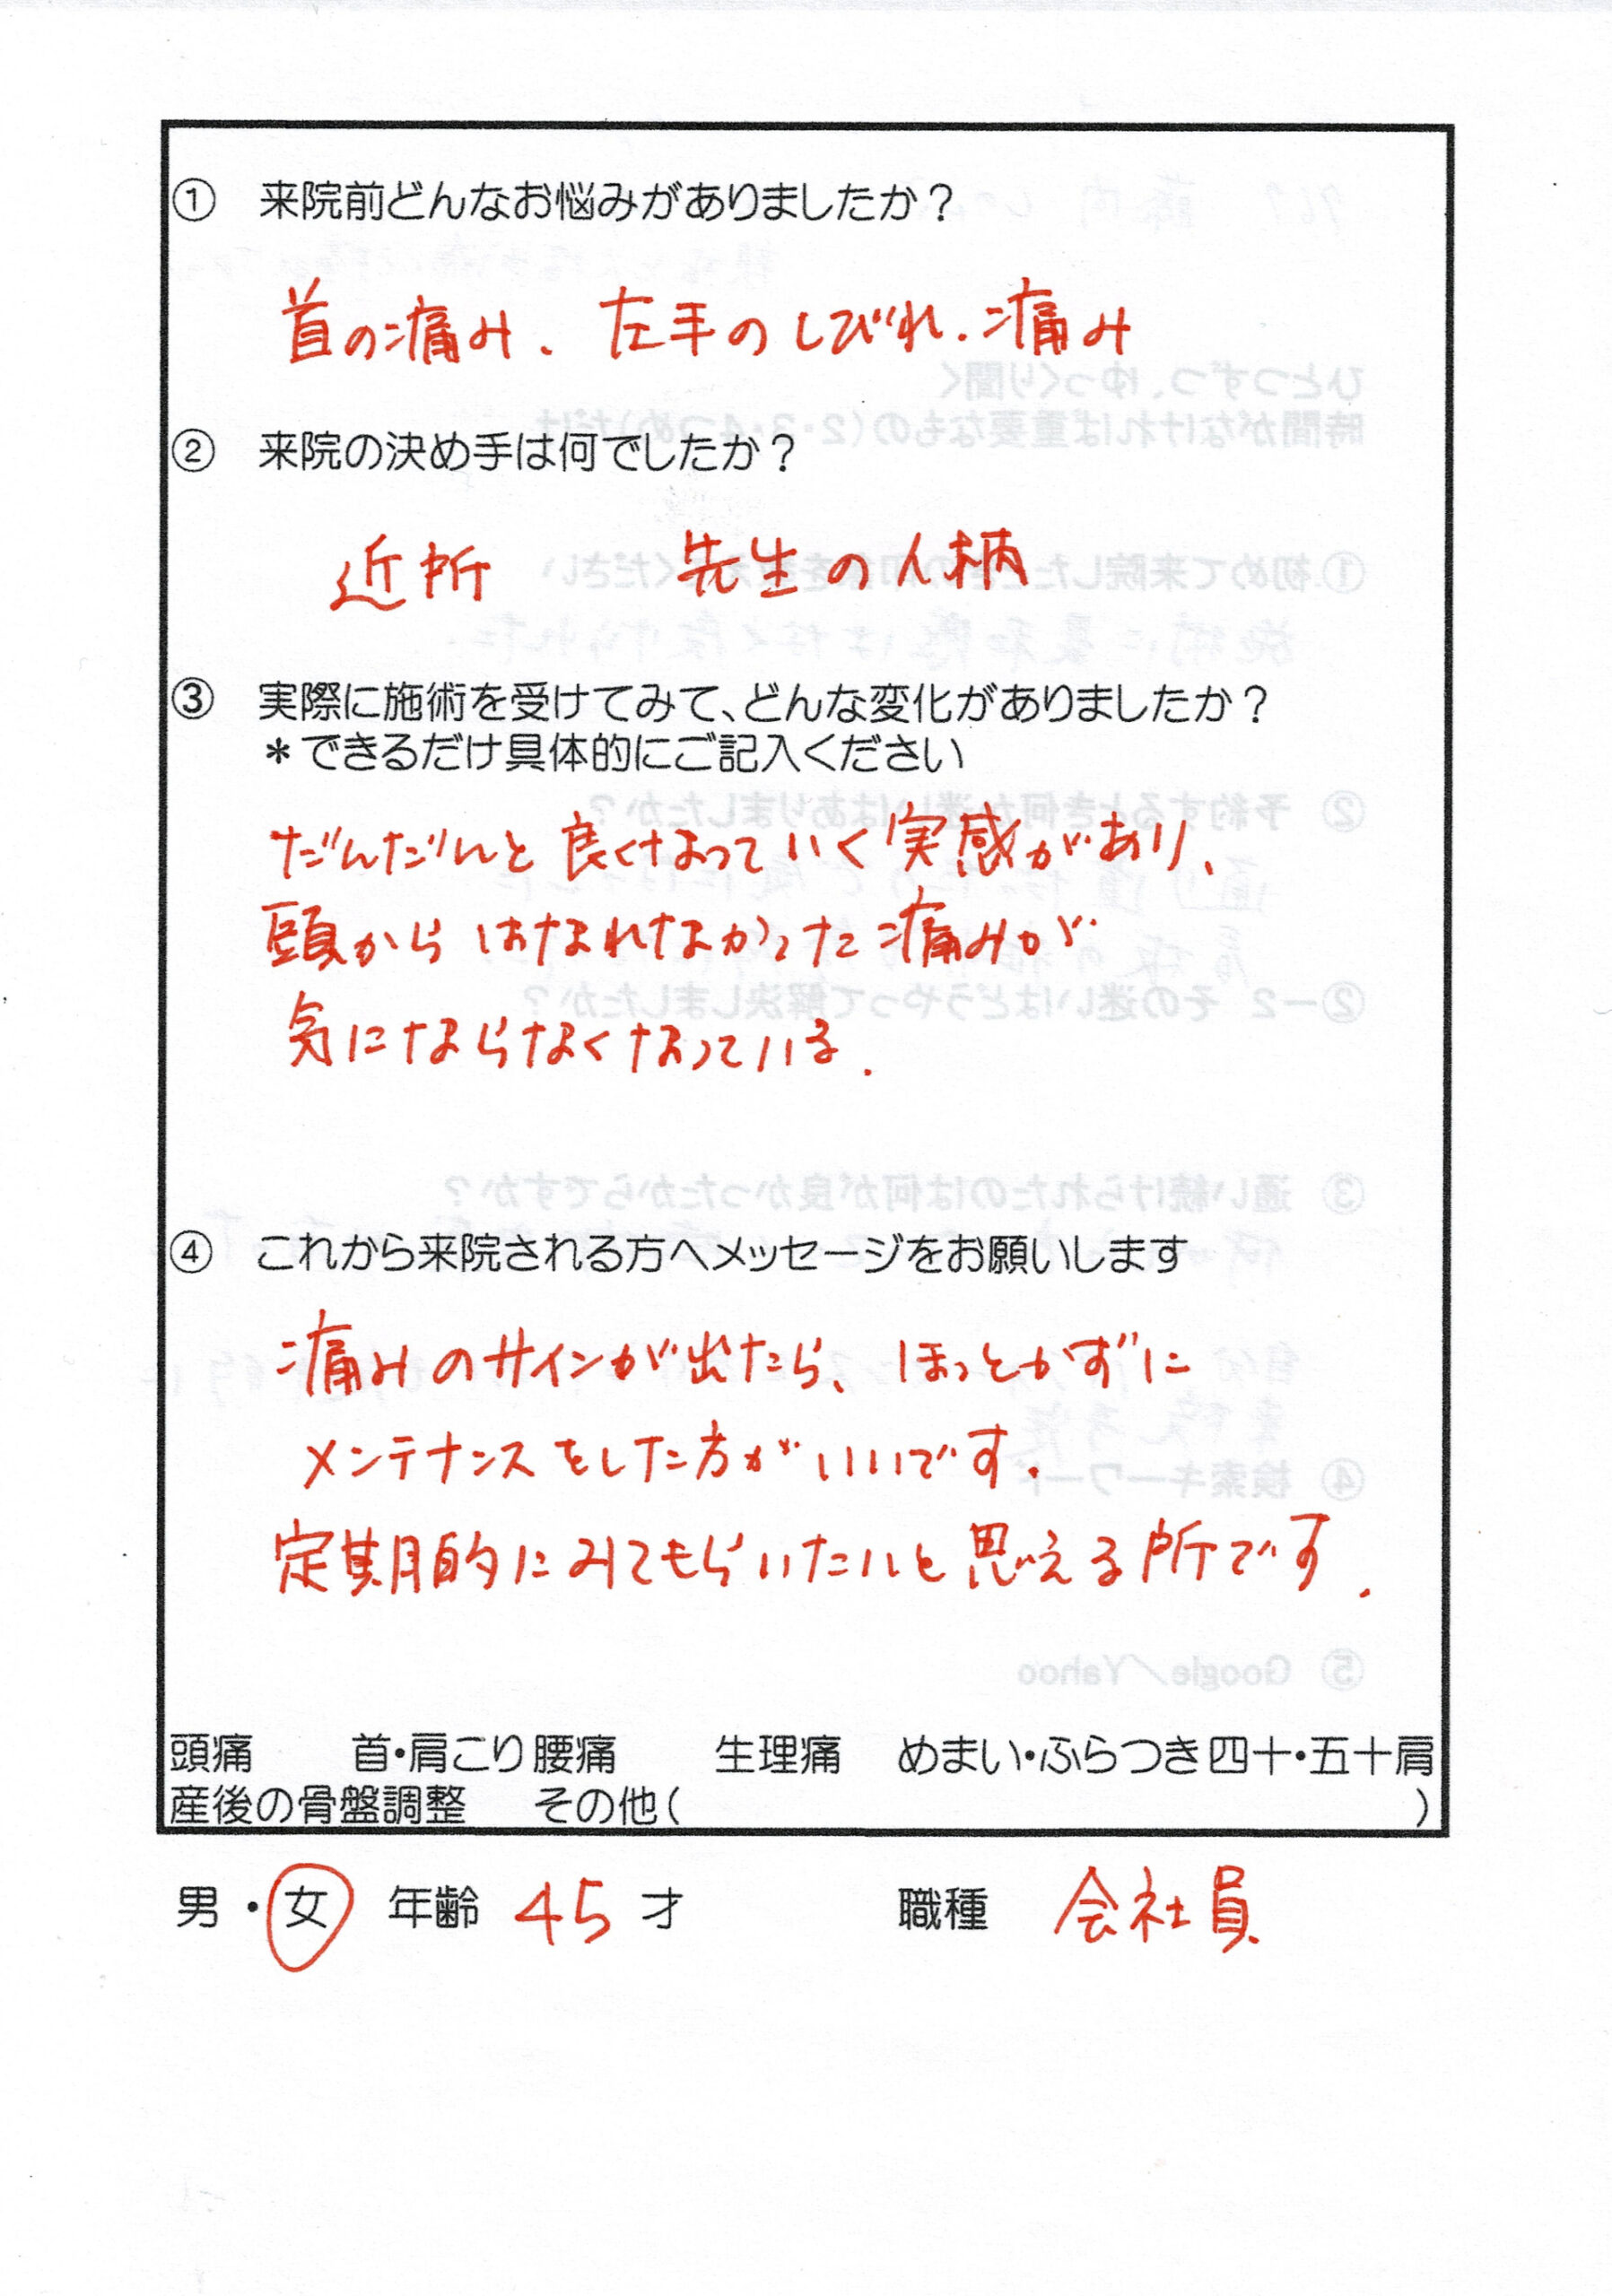 ① 来院前どんなお悩みがありましたか？
首の痛み、左手のしびれ.痛み
② 来院の決め手は何でしたか？
近所 先生の人柄
③ 実際に施術を受けてみて、どんな変化がありましたか？
＊できるだけ具体的にご記入ください
だんだんと良くなっていく実感があり、
頭からはなれなかった痛みが
気にならなくなっている.
④ これから来院される方へメッセージをお願いします
痛みのサインが出たら、ほっとかずに
メンテナンスをした方がいいです.
定期的にみてもらいたいと思える所です.
頭痛 首・肩こり 腰痛 生理痛 めまい・ふらつき 四十・五十肩
産後の骨盤調整 その他( )
男・女 年齢 45 才 職種 会社員